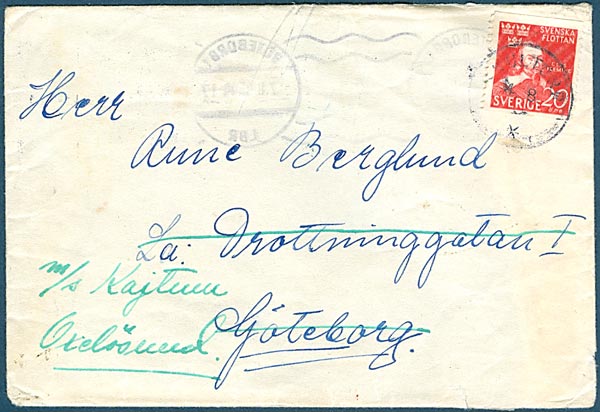 SVENSKA
FLOTTAN
SVERIGE 20
GÖTEBORG 1
LBR
Herr
Rune Berglund
La: Drottninggatan I
m/s Kajtum
Göteborg.
Oxelösund.